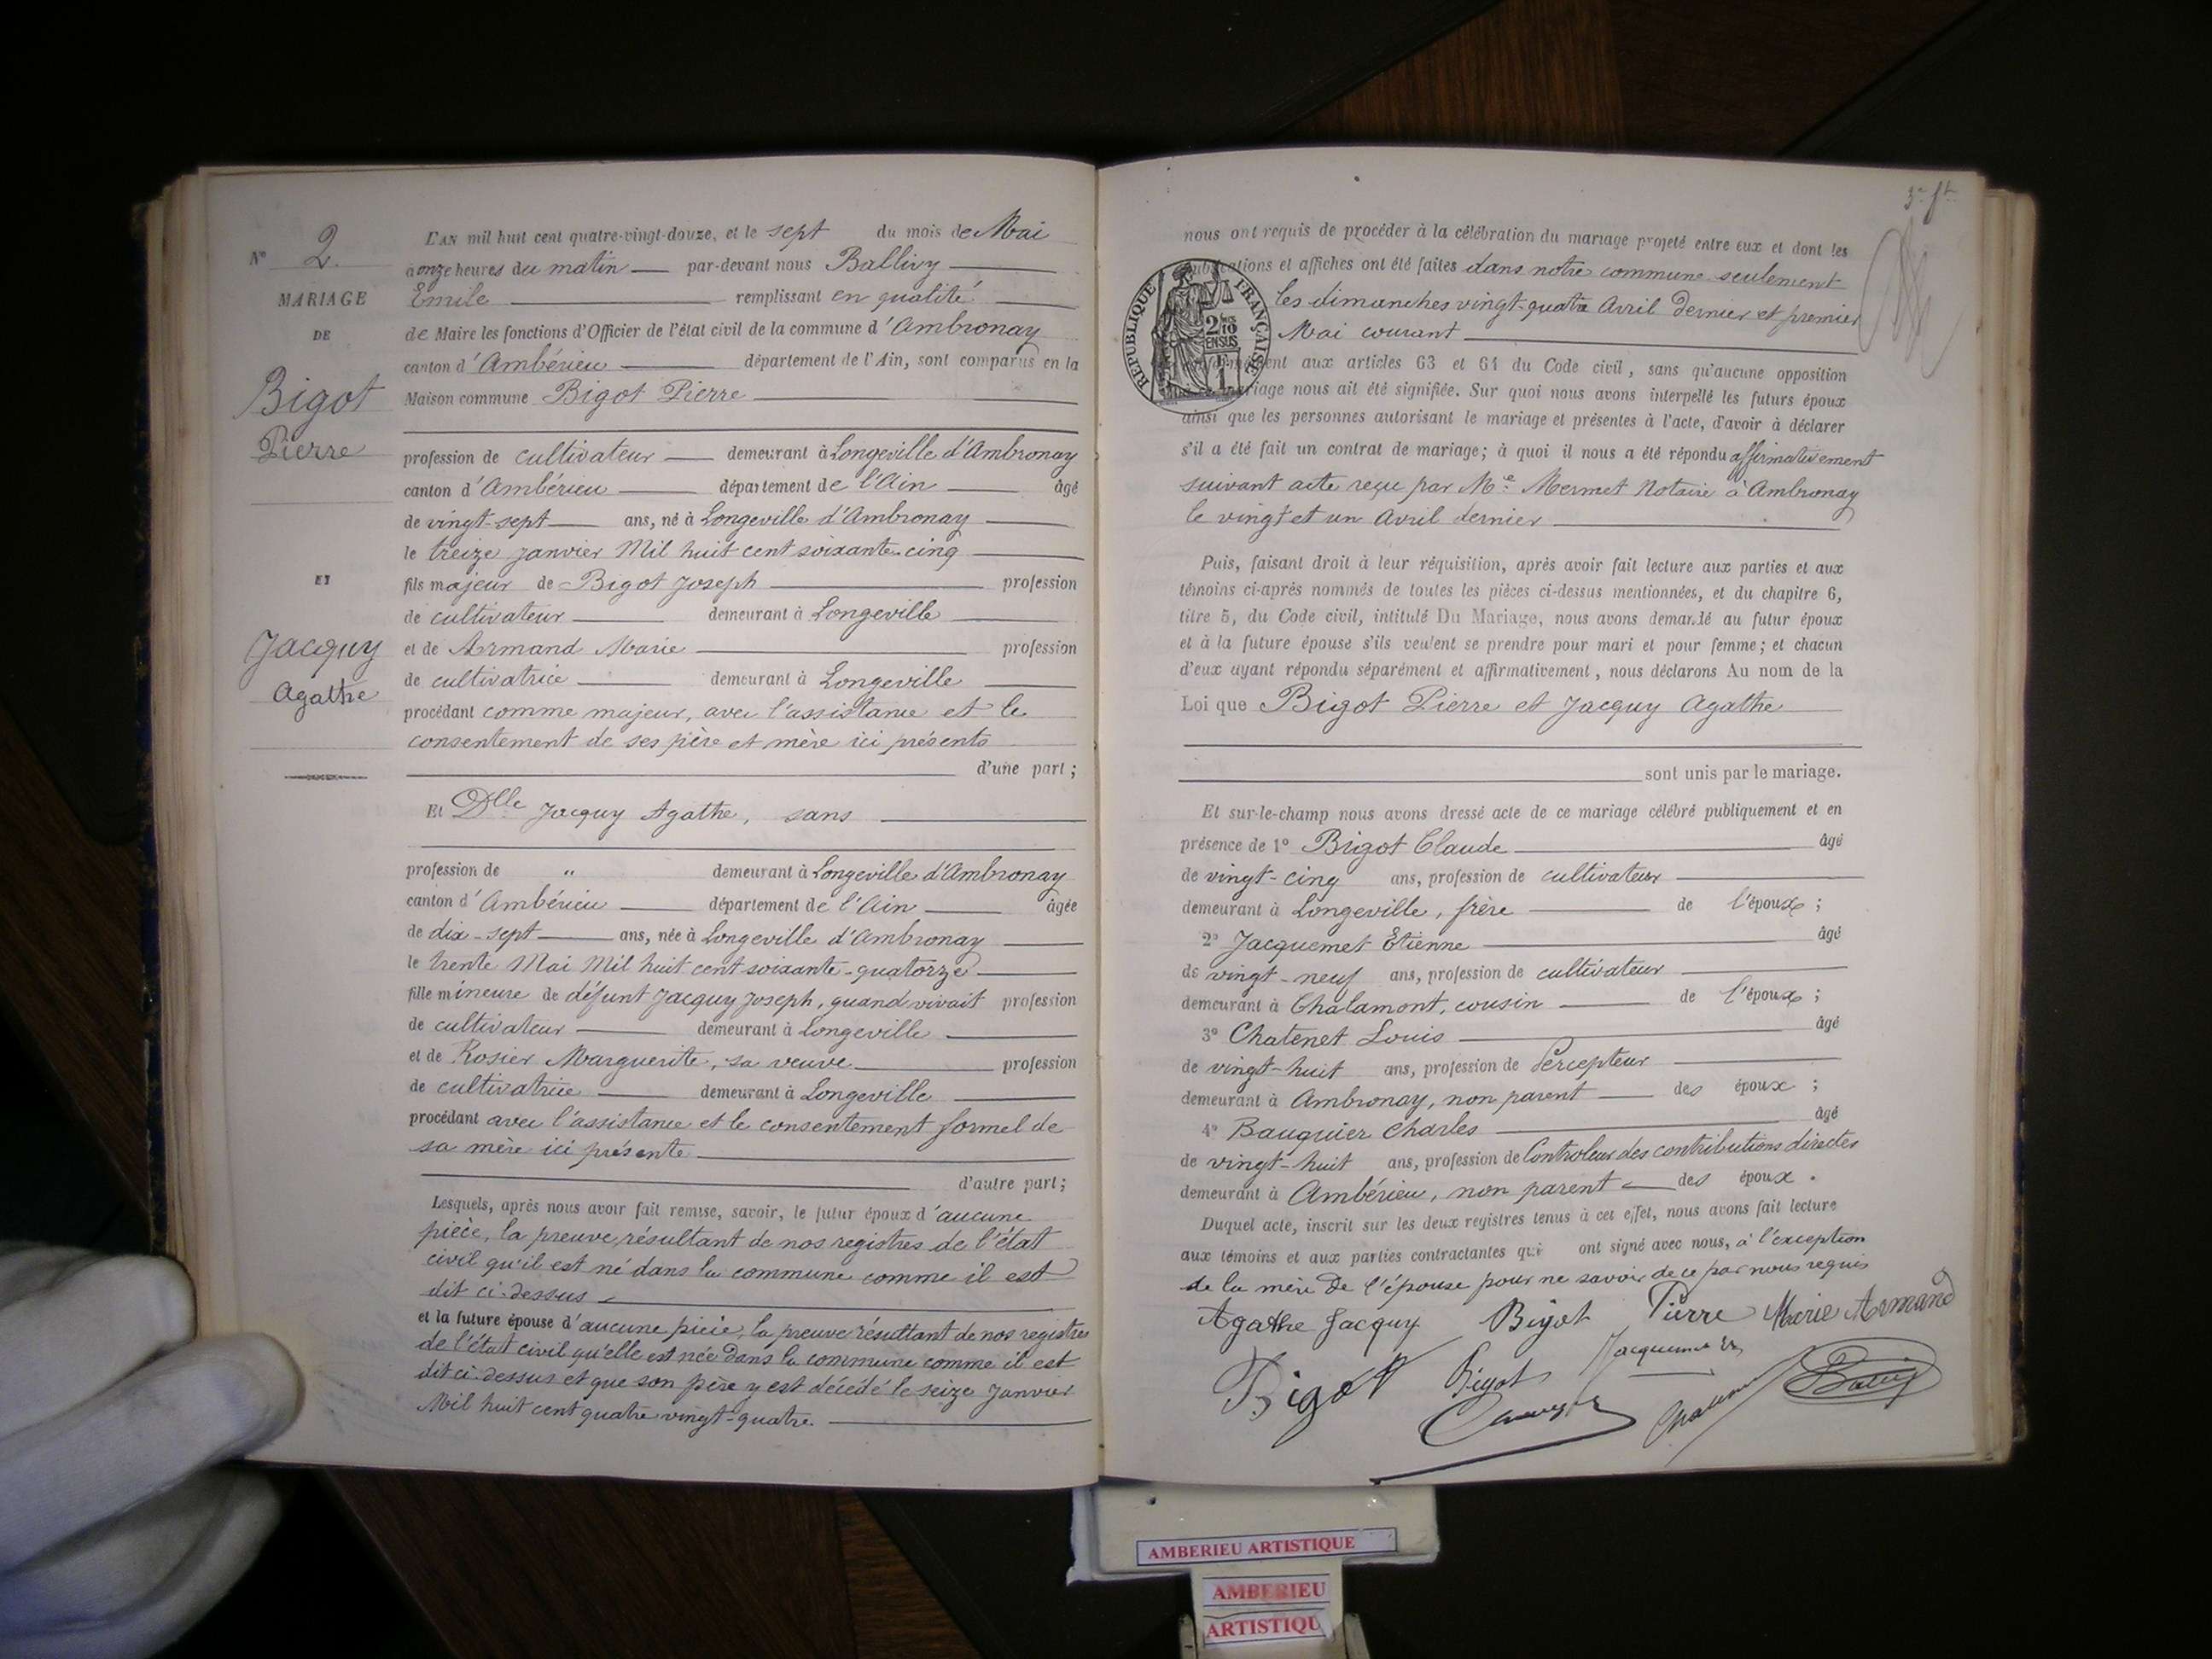 N° 2.
MARIAGE
DE
Bigot
Pierre
ET
Jacquy
Agathe
L'AN mil huit cent quatre-vingt-douze, et le sept du mois de Mai
à onze heures du matin par-devant nous Ballivy
Emile remplissant en qualité
de Maire les fonctions d'Officier de l'état civil de la commune d'Ambronay
canton d'Ambérieu département de l'Ain, sont comparus en la
Maison commune Bigot Pierre
profession de cultivateur demeurant à Longeville d'Ambronay
canton d'Ambérieu département de l'Ain âgé
de vingt-sept ans, né à Longeville d'Ambronay
le treize Janvier Mil huit cent soixante-cinq
fils majeur de Bigot Joseph profession
de cultivateur demeurant à Longeville
et de Armand Marie profession
de cultivatrice demeurant à Longeville
procédant comme majeur, avec l'assistance et le
consentement de ses père et mère ici présents
d'une part;
Et Dlle Jacquy Agathe, sans
profession de " demeurant à Longeville d'Ambronay
canton d'Ambérieu département de l'Ain âgée
de dix-sept ans, née à Longeville d'Ambronay
le trente Mai Mil huit cent soixante-quatorze
fille mineure de défunt Jacquy Joseph, quand vivait profession
de cultivateur demeurant à Longeville
et de Rosier Marguerite, sa veuve profession
de cultivatrice demeurant à Longeville
procédant avec l'assistance et le consentement formel de
sa mère ici présente
d'autre part;
Lesquels, après nous avoir fait remise, savoir, le futur époux d'aucune
pièce, la preuve résultant de nos registres de l'état
civil qu'il est né dans la commune comme il est
dit ci-dessus
et la future épouse d'aucune pièce, la preuve résultant de nos registres
de l'état civil qu'elle est née dans la commune comme il est
dit ci-dessus et que son père y est décédé le seize Janvier
Mil huit cent quatre vingt-quatre.
nous ont requis de procéder à la célébration du mariage projeté entre eux et dont les
publications et affiches ont été faites dans notre commune seulement
les dimanches vingt-quatre Avril dernier et premier
Mai courant
RÉPUBLIQUE FRANÇAISE
2/10 EN SUS
1
conformément aux articles 63 et 64 du Code civil, sans qu'aucune opposition
mariage nous ait été signifiée. Sur quoi nous avons interpellé les futurs époux
ainsi que les personnes autorisant le mariage et présentes à l'acte, d'avoir à déclarer
s'il a été fait un contrat de mariage; à quoi il nous a été répondu affirmativement
suivant acte reçu par Me Mermet Notaire à Ambronay
le vingt et un Avril dernier
Puis, faisant droit à leur réquisition, après avoir fait lecture aux parties et aux
témoins ci-après nommés de toutes les pièces ci-dessus mentionnées, et du chapitre 6,
titre 5, du Code civil, intitulé Du Mariage, nous avons demandé au futur époux
et à la future épouse s'ils veulent se prendre pour mari et pour femme; et chacun
d'eux ayant répondu séparément et affirmativement, nous déclarons Au nom de la
Loi que Bigot Pierre et Jacquy Agathe
sont unis par le mariage.
Et sur-le-champ nous avons dressé acte de ce mariage célébré publiquement et en
présence de 1° Bigot Claude âgé
de vingt-cinq ans, profession de cultivateur
demeurant à Longeville, frère de l'époux;
2° Jacquemet Etienne âgé
de vingt-neuf ans, profession de cultivateur
demeurant à Chalamont, cousin de l'époux;
3° Chatenet Louis âgé
de vingt-huit ans, profession de Percepteur
demeurant à Ambronay, non parent des époux;
4° Bauquier Charles âgé
de vingt-huit ans, profession de Controleur des contributions directes
demeurant à Ambérieu, non parent des époux.
Duquel acte, inscrit sur les deux registres tenus à cet effet, nous avons fait lecture
aux témoins et aux parties contractantes qui ont signé avec nous, à l'exception
de la mère de l'épouse pour ne savoir de ce par nous requis
Agathe Jacquy Bigot Pierre Marie Armand
Bigot Bigot
AMBERIEU ARTISTIQUE
AMBERIEU
ARTISTIQU